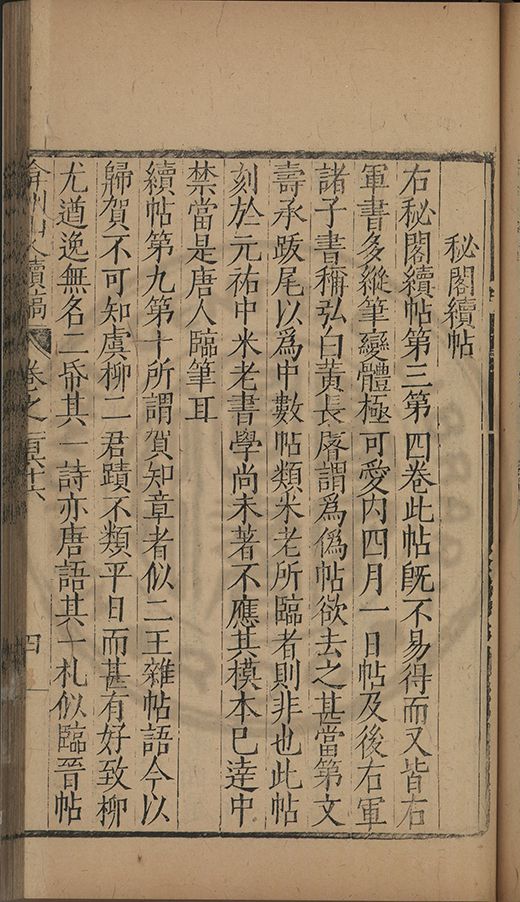 秘閣續帖
右秘閣續帖第三第四卷此帖旣不易得而又皆右
軍書多縱筆變體極可愛内四月一日帖及後右軍
諸子書稱弘白黄長睿謂爲僞帖欲去之甚當第文
壽承跋尾以爲中數帖類米老所臨者則非也此帖
刻於元祐中米老書學尚未著不應其模本已達中
禁當是唐人臨筆耳
續帖第九第十所謂賀知章者似二王雜帖語今以
歸賀不可知虞柳二君蹟不類平日而甚有好致柳
尤遒逸無名二帋其一詩亦唐語其一札似臨晉帖
弇州山人續稿
卷之一百六十六
四